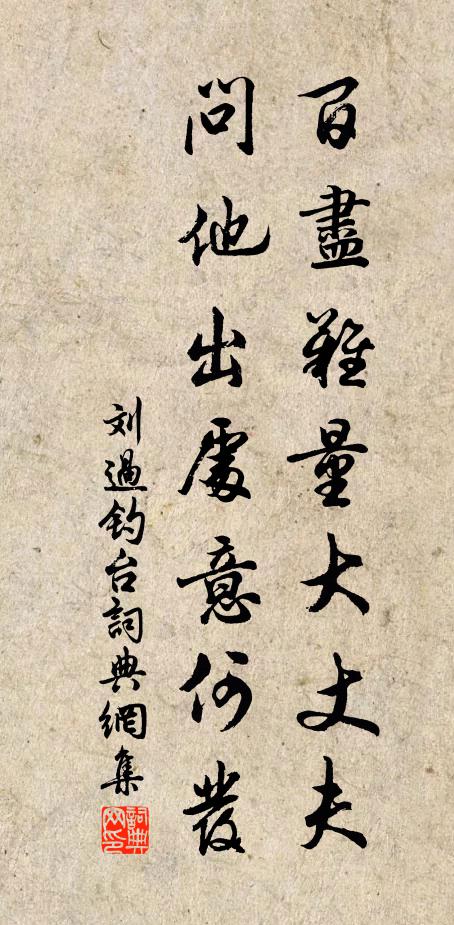 百盡難量大丈夫
問他出處意何發
刘過釣台詞典網集
詞典
网印